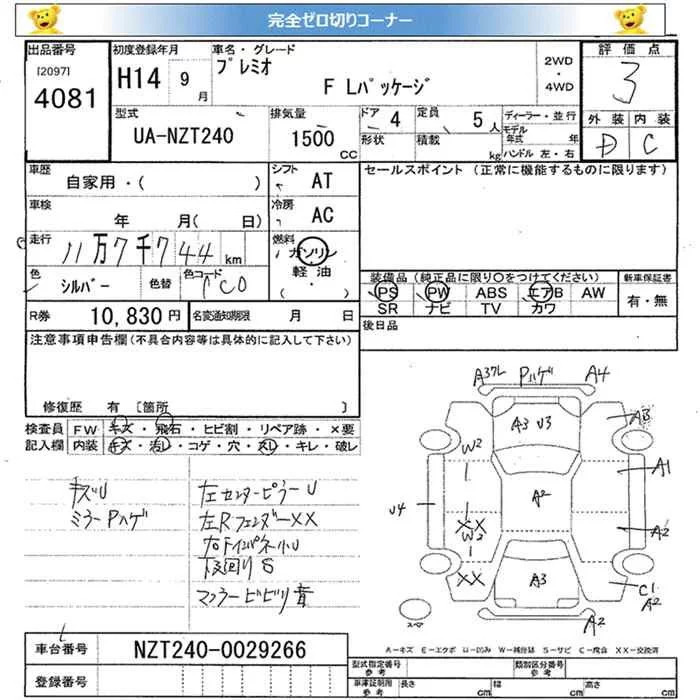 完全ゼロ切りコーナー
出品番号 初度登録年月 車名・グレード 評価点
[2097] 4081 H14 9月 プレミオ F Lパッケージ 2WD・4WD 3
型式 排気量 ドア 4 定員 5人 ディーラー・並行 外装 内装
UA-NZT240 1500 CC 形状 積載 kg モデル年式 年 D C
ハンドル 左・右
車歴 シフト セールスポイント (正常に機能するものに限ります)
自家用・( ) AT
車検 冷房
年 月( 日) AC
走行 燃料
11万7千744km ガソリン
色 色替 色コード 軽油 装備品(純正品に限り○をつけてください) 新車保証書
シルバー 1C0 (・) PS PW ABS エアB AW 有・無
SR ナビ TV カワ
R券 10,830円 名変通知期限 月 日 後日品
注意事項申告欄(不具合内容等は具体的に記入して下さい)
修復歴 有 [箇所 ]
検査員 FW キズ・飛石・ヒビ割・リペア跡・×要
記入欄 内装 キズ・汚レ・コゲ・穴・スレ・キレ・破レ
キズU 左センターピラーU
ミラーPハゲ 左RフェンダーXX
右ドインパネ小U
下回りS
マフラービビリ音
Pハゲ A4
A3 U3 AB
W2 A1
U4 A2 A2
XX
W3
XX A3 C1
A2
A2
スペア
A-キズ E-エクボ U-凹み W-補修跡 S-サビ C-腐食 XX-交換済
車台番号 NZT240-0029266
登録番号
型式指定番号 参考 類別区分番号 参考
車庫証明用 参考 長さ cm 幅 cm 高さ cm